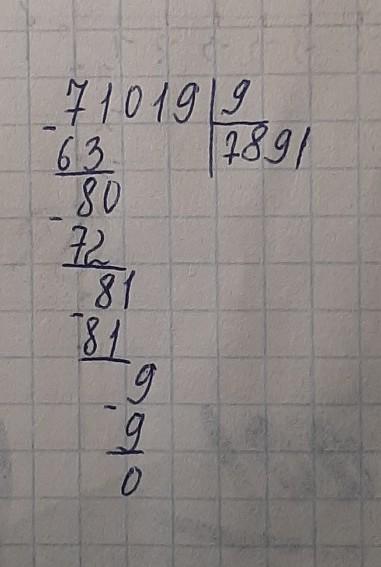 - 71019 | 9
63 7891
80
- 72
81
- 81
9
- 9
0